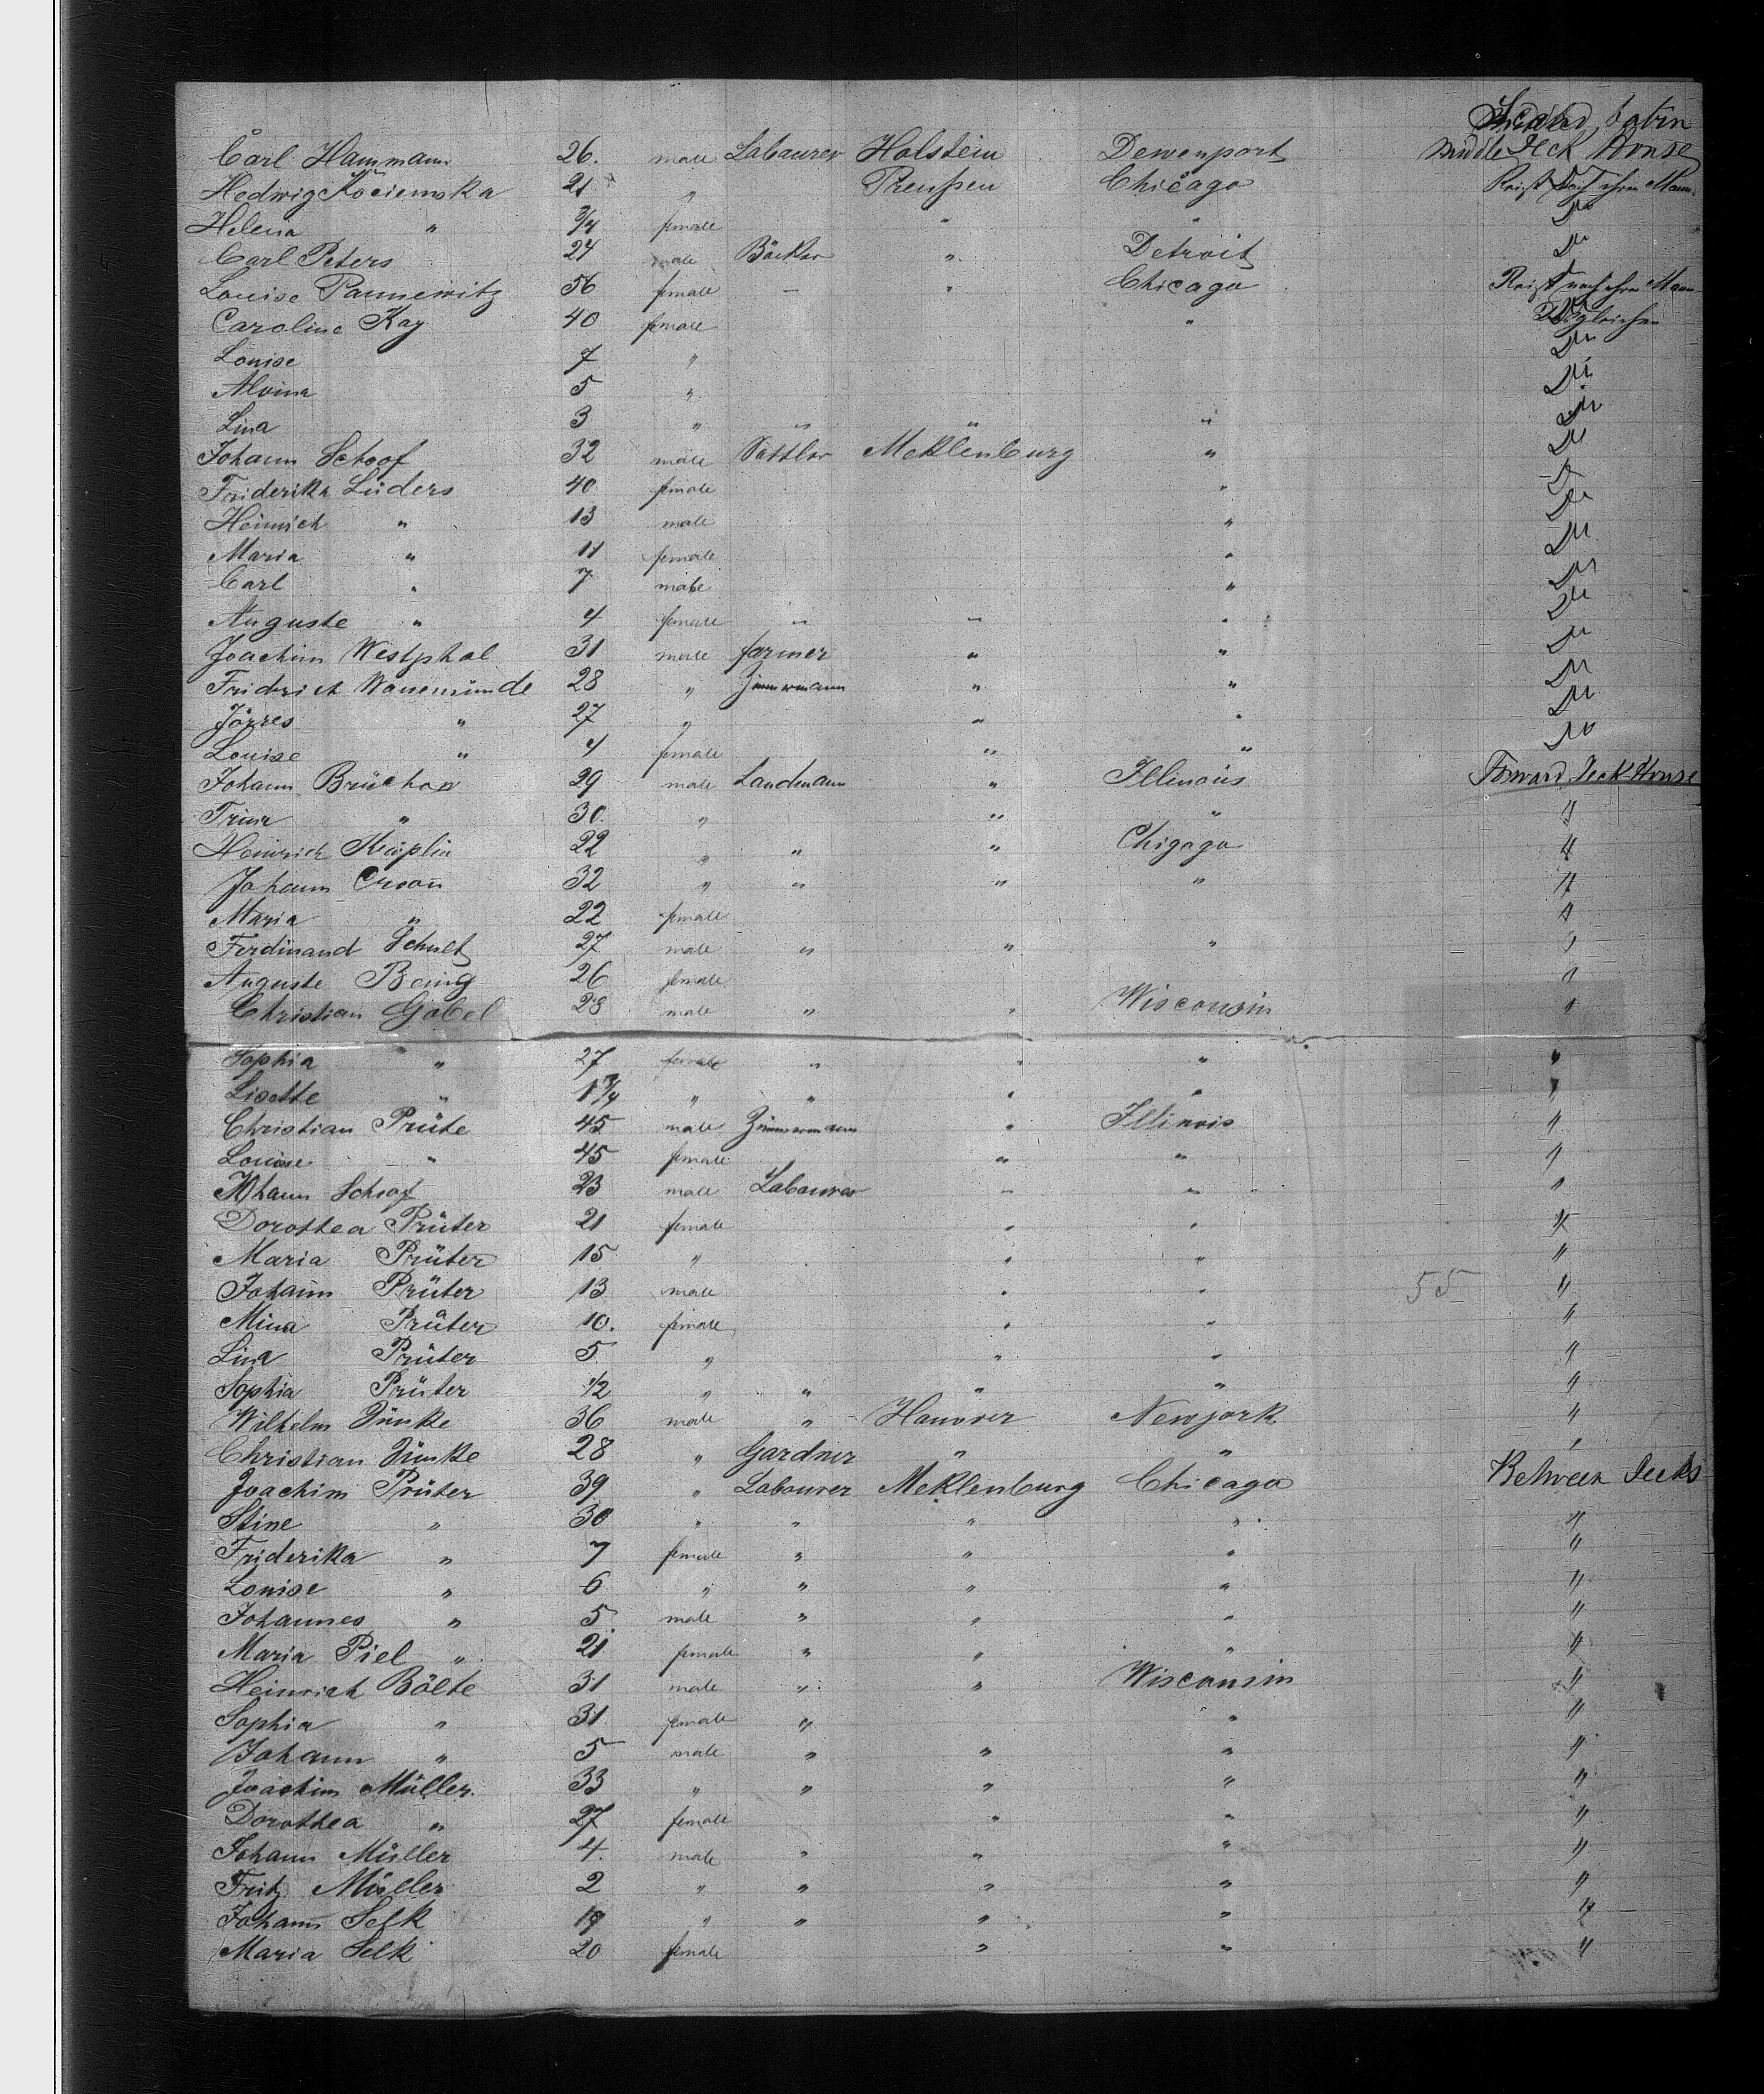 Second Cabin
Carl Hammann 26. male Labaurer Holstein Dewenport Middle Deck House
Hedwig Kociemska 21 " Preußen Chicago Reist nach ihrem Mann.
Helena " 3/4 female " " Do
Carl Peters 24 male Bäcker " Detroit Do
Louise Pannewitz 56 female – " Chicago Reist nach ihrem Mann
Caroline Kay 40 female " Desgleichen
Louise 7 " Do
Alvina 5 " Do
Lina 3 " " " " Do
Johann Schoof 32 male Sattler Meklenburg " Do
Friderika Lüders 40 female " Do
Heinrich " 13 male " Do
Maria " 11 female " Do
Carl " 7 male " Do
Auguste " 4 female " " " Do
Joachim Westphal 31 male farmer " " Do
Fridrich Wansemünde 28 " Zimmermann " " Do
Jörres " 27 " " " Do
Louise " 4 female " " Do
Johann 29 male Landmann " Illinois Forward Deck House
Trina " 30. " " " "
Heinrich Käplin 22 " " " Chigago "
Johann Croon 32 " " " " "
Maria " 22 female "
Ferdinand Schult 27 male " " " "
Auguste Being 26 female "
Christian Gabel 28 male " " Wisconsin "
Sophia " 27 female " " " "
Lisette " 1 3/4 " " " " "
Christian Prüte 45 male Zimmermann " Illinois "
Louise " 45 female " " "
Johann Schoof 23 male Labourer " " "
Dorothea Prüter 21 female " " "
Maria Prüter 15 " " " "
Johann Prüter 13 male " " 55 "
Mina Prüter 10. female " " "
Lina Prüter 5 " " " "
Sophia Prüter 1/2 " " " " "
Wilhelm Dünke 36 male " Hanover Newjork "
Christian Dünke 28 " Gardner " " "
Joachim Prüter 39 " Labourer Meklenburg Chicago Between Decks
Stine " 30 " " " " "
Friderika " 7 female " " " "
Louise " 6 " " " " "
Johannes " 5 male " " " "
Maria Piel " 21 female " " " "
Heinrich Bälte 31 male " " Wisconsin "
Sophia " 31 female " " "
Johann " 5 male " " " "
Joachim Müller. 33 " " " " "
Dorothea " 27 female " " "
Johann Müller 4. male " " " "
Fritz Müller 2 " " " " "
Johann Selk 19 " " " " "
Maria Selk 20 female " " "